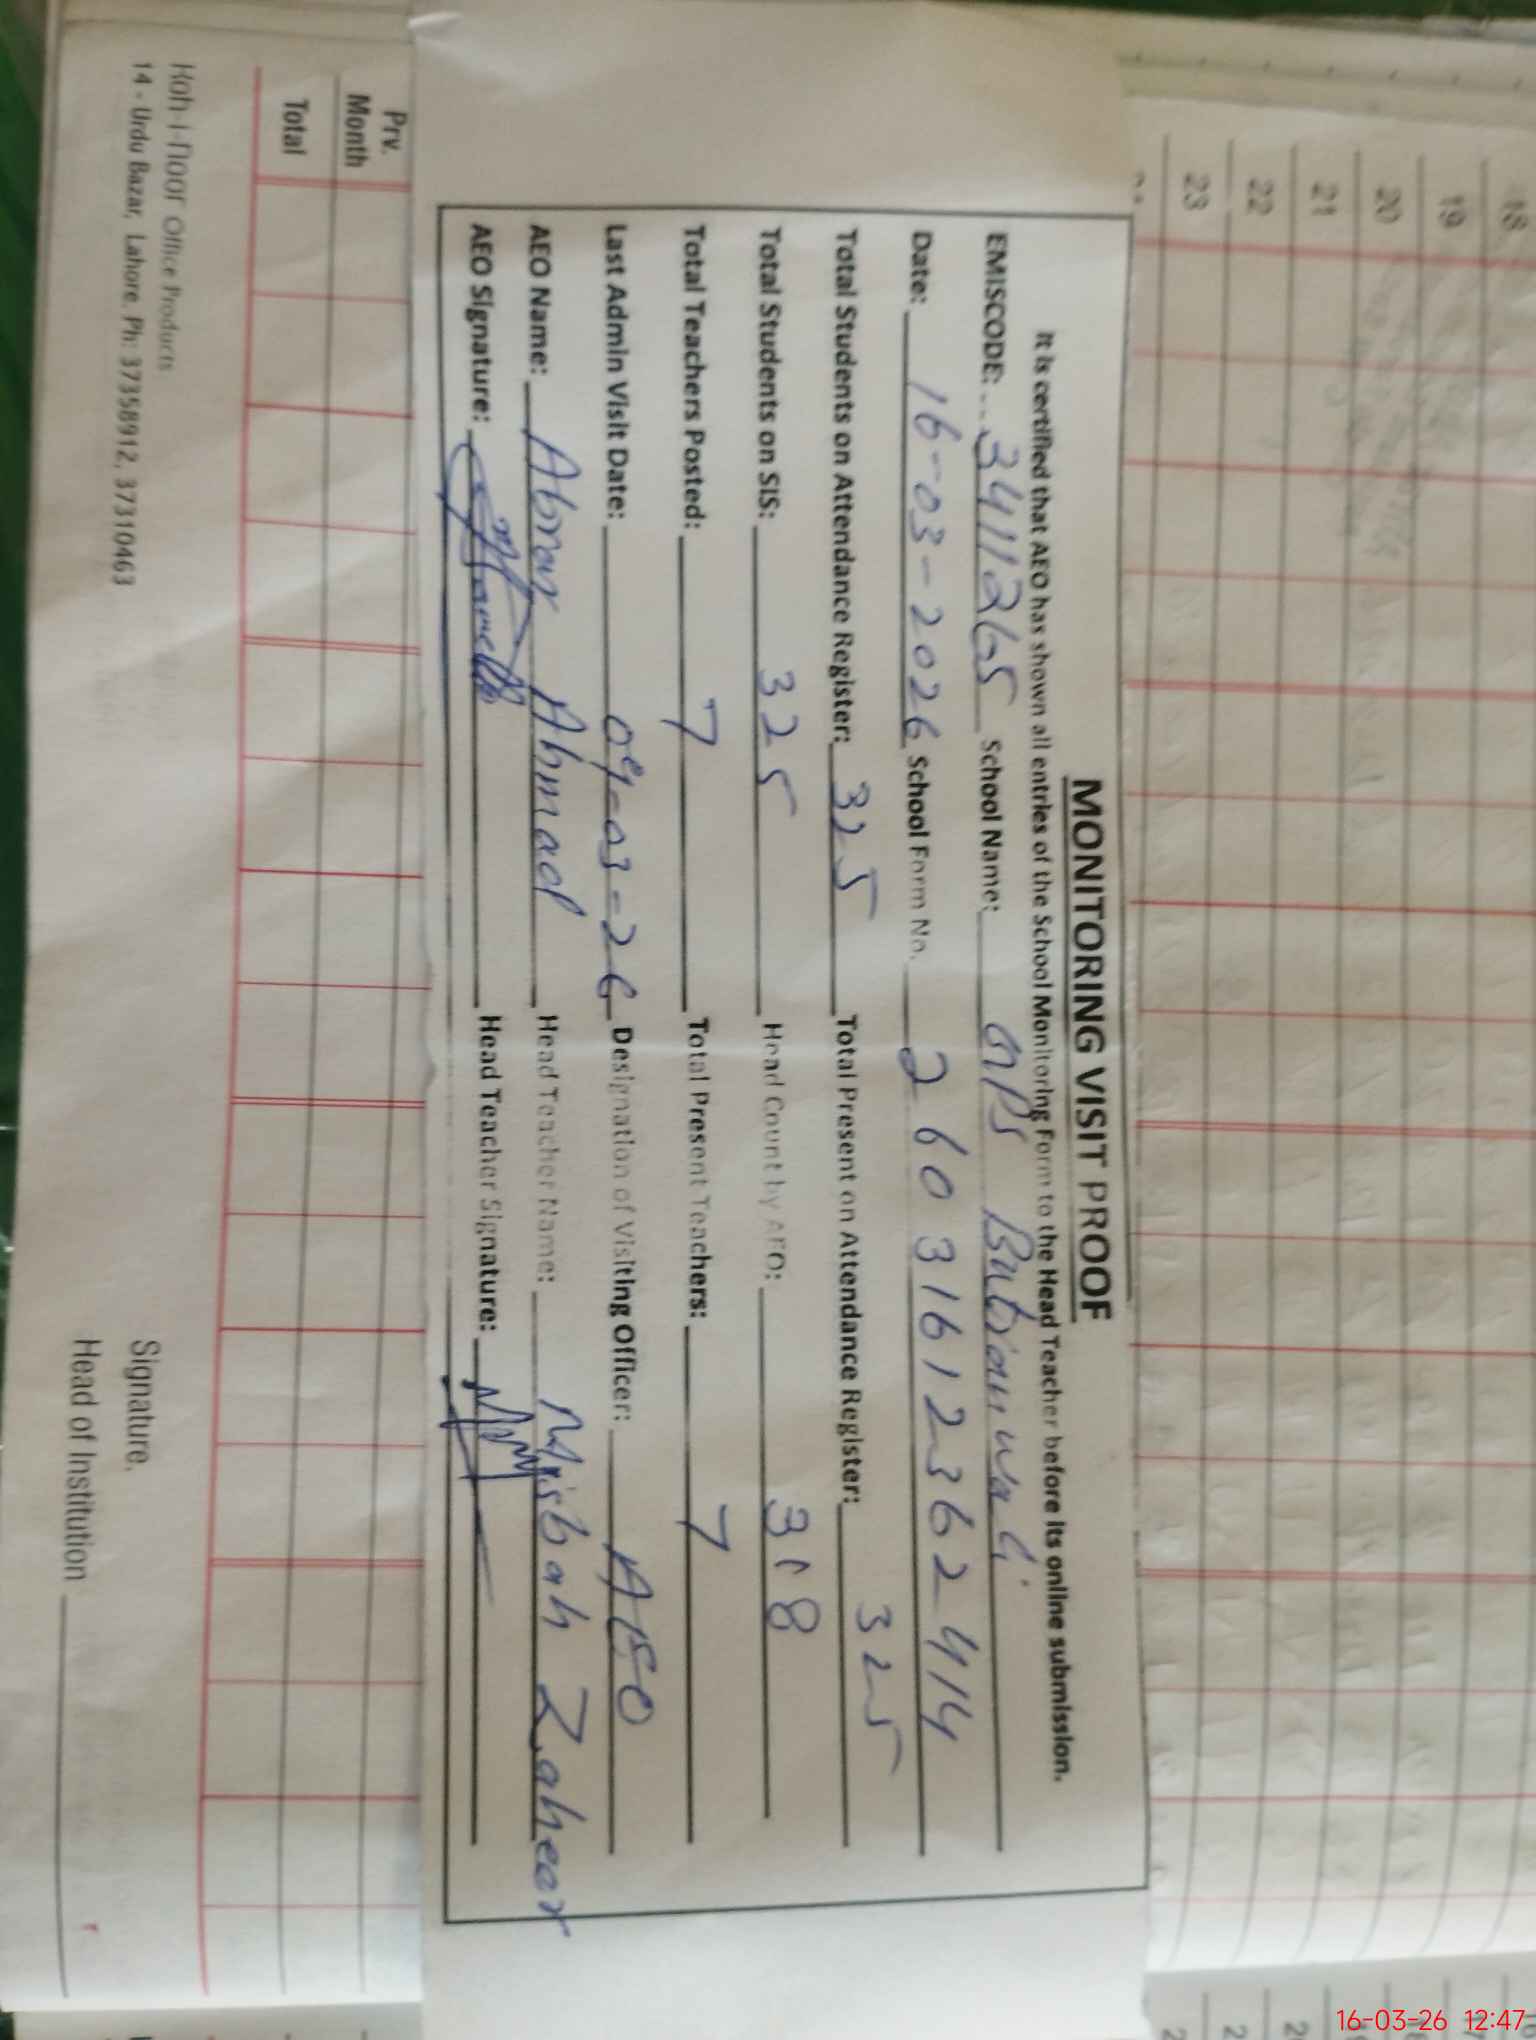 18
19
20
21
22
23
MONITORING VISIT PROOF
It is certified that AEO has shown all entries of the School Monitoring Form to the Head Teacher before its online submission.
EMISCODE: 34111265 School Name: GPS
Date: 16-03-2026 School Form No. 26031612362414
Total Students on Attendance Register: 325 Total Present on Attendance Register: 325
Total Students on SIS: 325 Head Count by AEO: 318
Total Teachers Posted: 7 Total Present Teachers: 7
Last Admin Visit Date: 09-03-26 Designation of Visiting Officer: AEO
AEO Name: Abrar Ahmad Head Teacher Name: Misbah Zaheer
AEO Signature: Head Teacher Signature:
Prv.
Month
Total
Koh-i-noor Office Products
14 - Urdu Bazar, Lahore. Ph: 37358912, 37310463
Signature.
Head of Institution
16-03-26 12:47